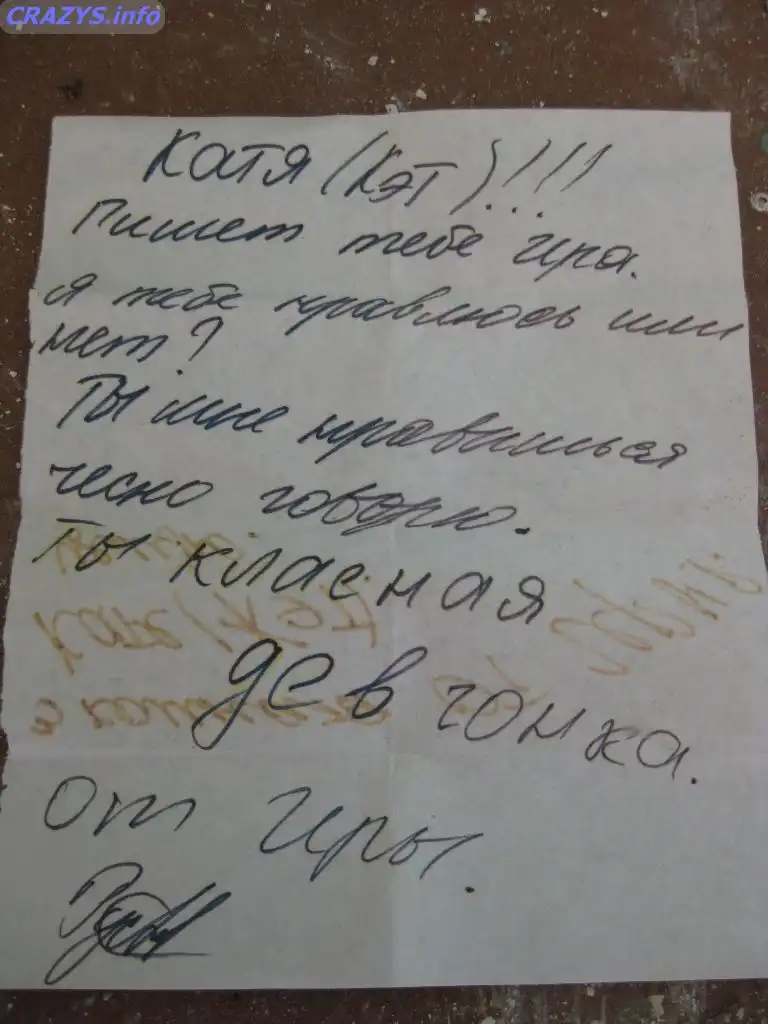 CRAZYS.info
Катя (Кэт)!!!
Пишет тебе Ира.
я тебе нравлюсь или
нет?
Ты мне нравишься
чесно говорю.
Ты класная
девчонка.
От Иры.